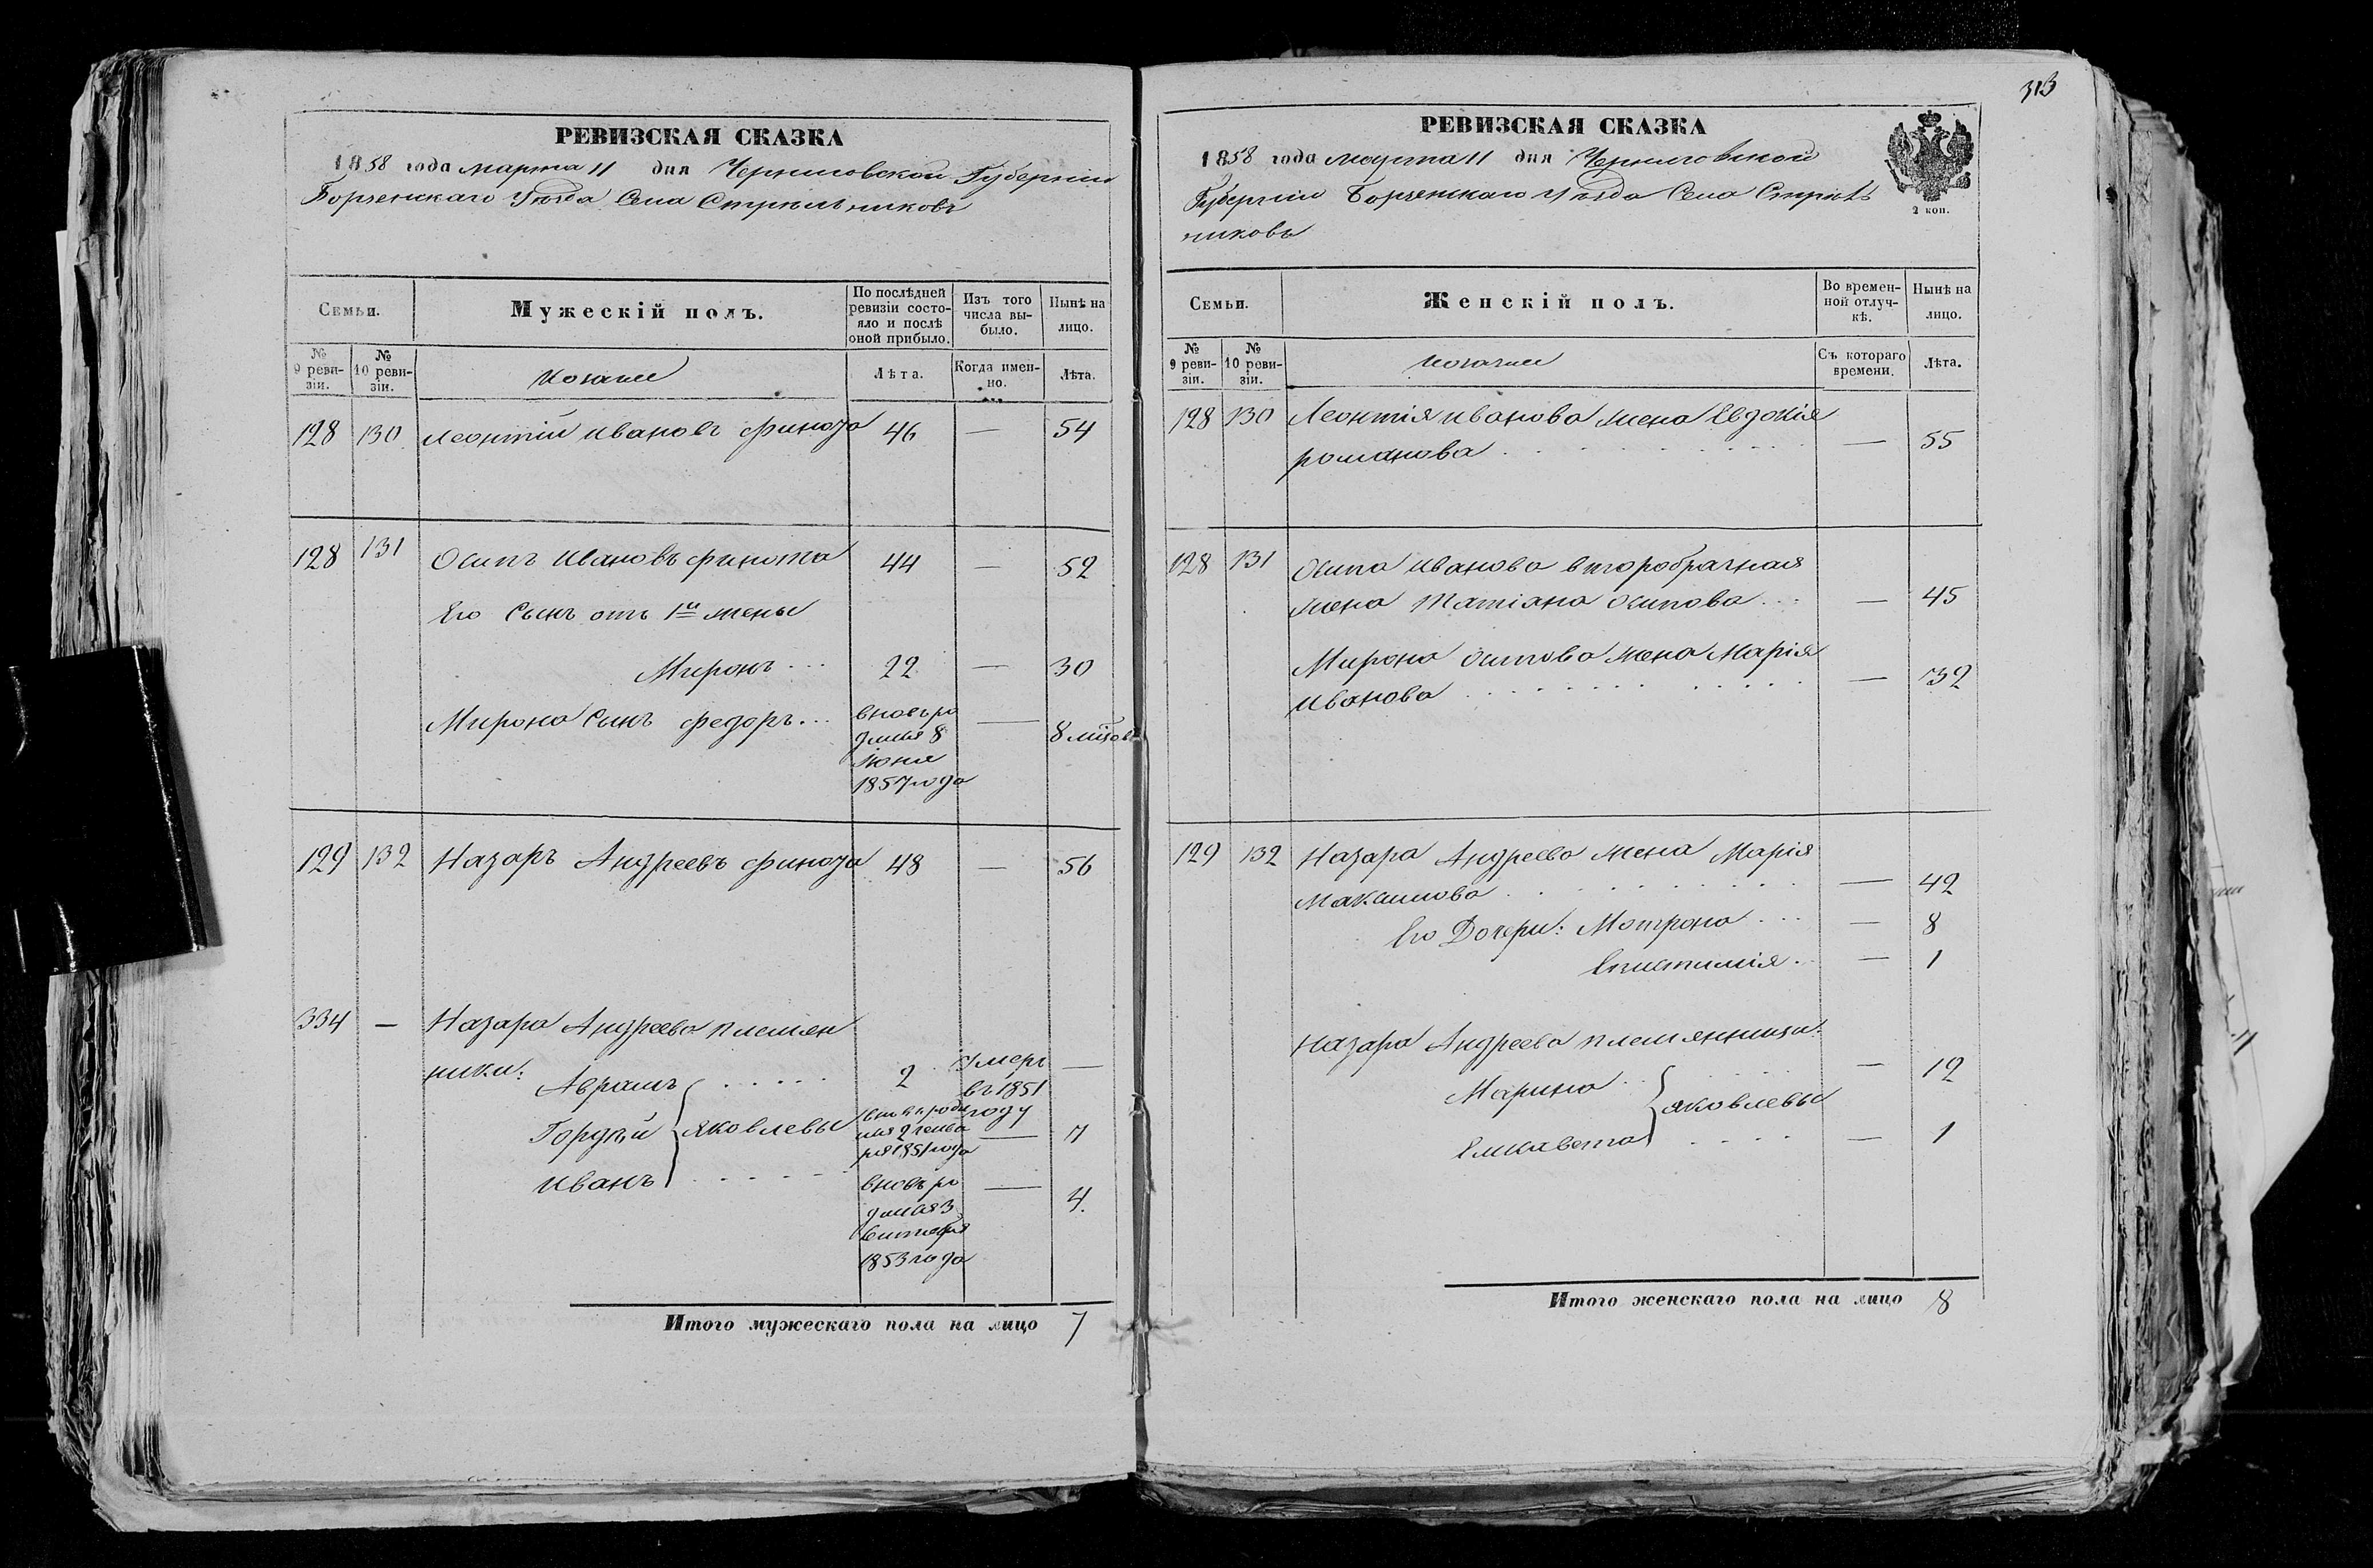 РЕВИЗСКАЯ СКАЗКА
1858 года марта 11 дня Черниговской Губерніи
Борзенскаго Уѣзда Села Стрѣльниковъ
Семьи.
Мужескій полъ.
По послѣдней ревизіи состояло и послѣ оной прибыло.
Изъ того числа выбыло.
Нынѣ на лицо.
№ 9 ревизіи.
№ 10 ревизіи.
Козаки
Лѣта.
Когда именно.
Лѣта.
128 130 Леонтій Ивановъ 46 — 54
128 131 Осипъ Ивановъ 44 — 52
Его Сынъ отъ 1й жены
Миронъ ... 22 — 30
Мирона Сынъ Федоръ... вновь ро — 8 мцов
дился 8
Іюня
1857 года
129 132 Назаръ Андреевъ 48 — 56
334 — Назара Андреева племян
ники:
Аврамъ ..... 2 Умеръ —
въ 1851
году
Гордѣй Яковлевы — 7
1851 года
Иванъ ..... вновь ро — 4.
дился 3
1853 года
Итого мужескаго пола на лицо 7
313
РЕВИЗСКАЯ СКАЗКА
2 коп.
1858 года марта 11 дня Черниговской
Губерніи Борзенскаго Уѣзда Села Стрѣль
никовъ
Семьи.
Женскій полъ.
Во временной отлучкѣ.
Нынѣ на лицо.
№ 9 ревизіи.
№ 10 ревизіи.
Козачки
Съ котораго времени.
Лѣта.
128 130 Леонтія Иванова жена Евдокія
романова — 55
128 131 Осипа Иванова второбрачная
жена Татіана Осипова ... — 45
Мирона Осипова жена Марія
Иванова — 32
129 132 Назара Андреева жена Марія
Максимова — 42
Его Дочери: Мотрона ... — 8
Епистимія .. — 1
Назара Андреева племянницы:
Марина .. — 12
Яковлевы
Елисавета .... — 1
Итого женскаго пола на лицо 8